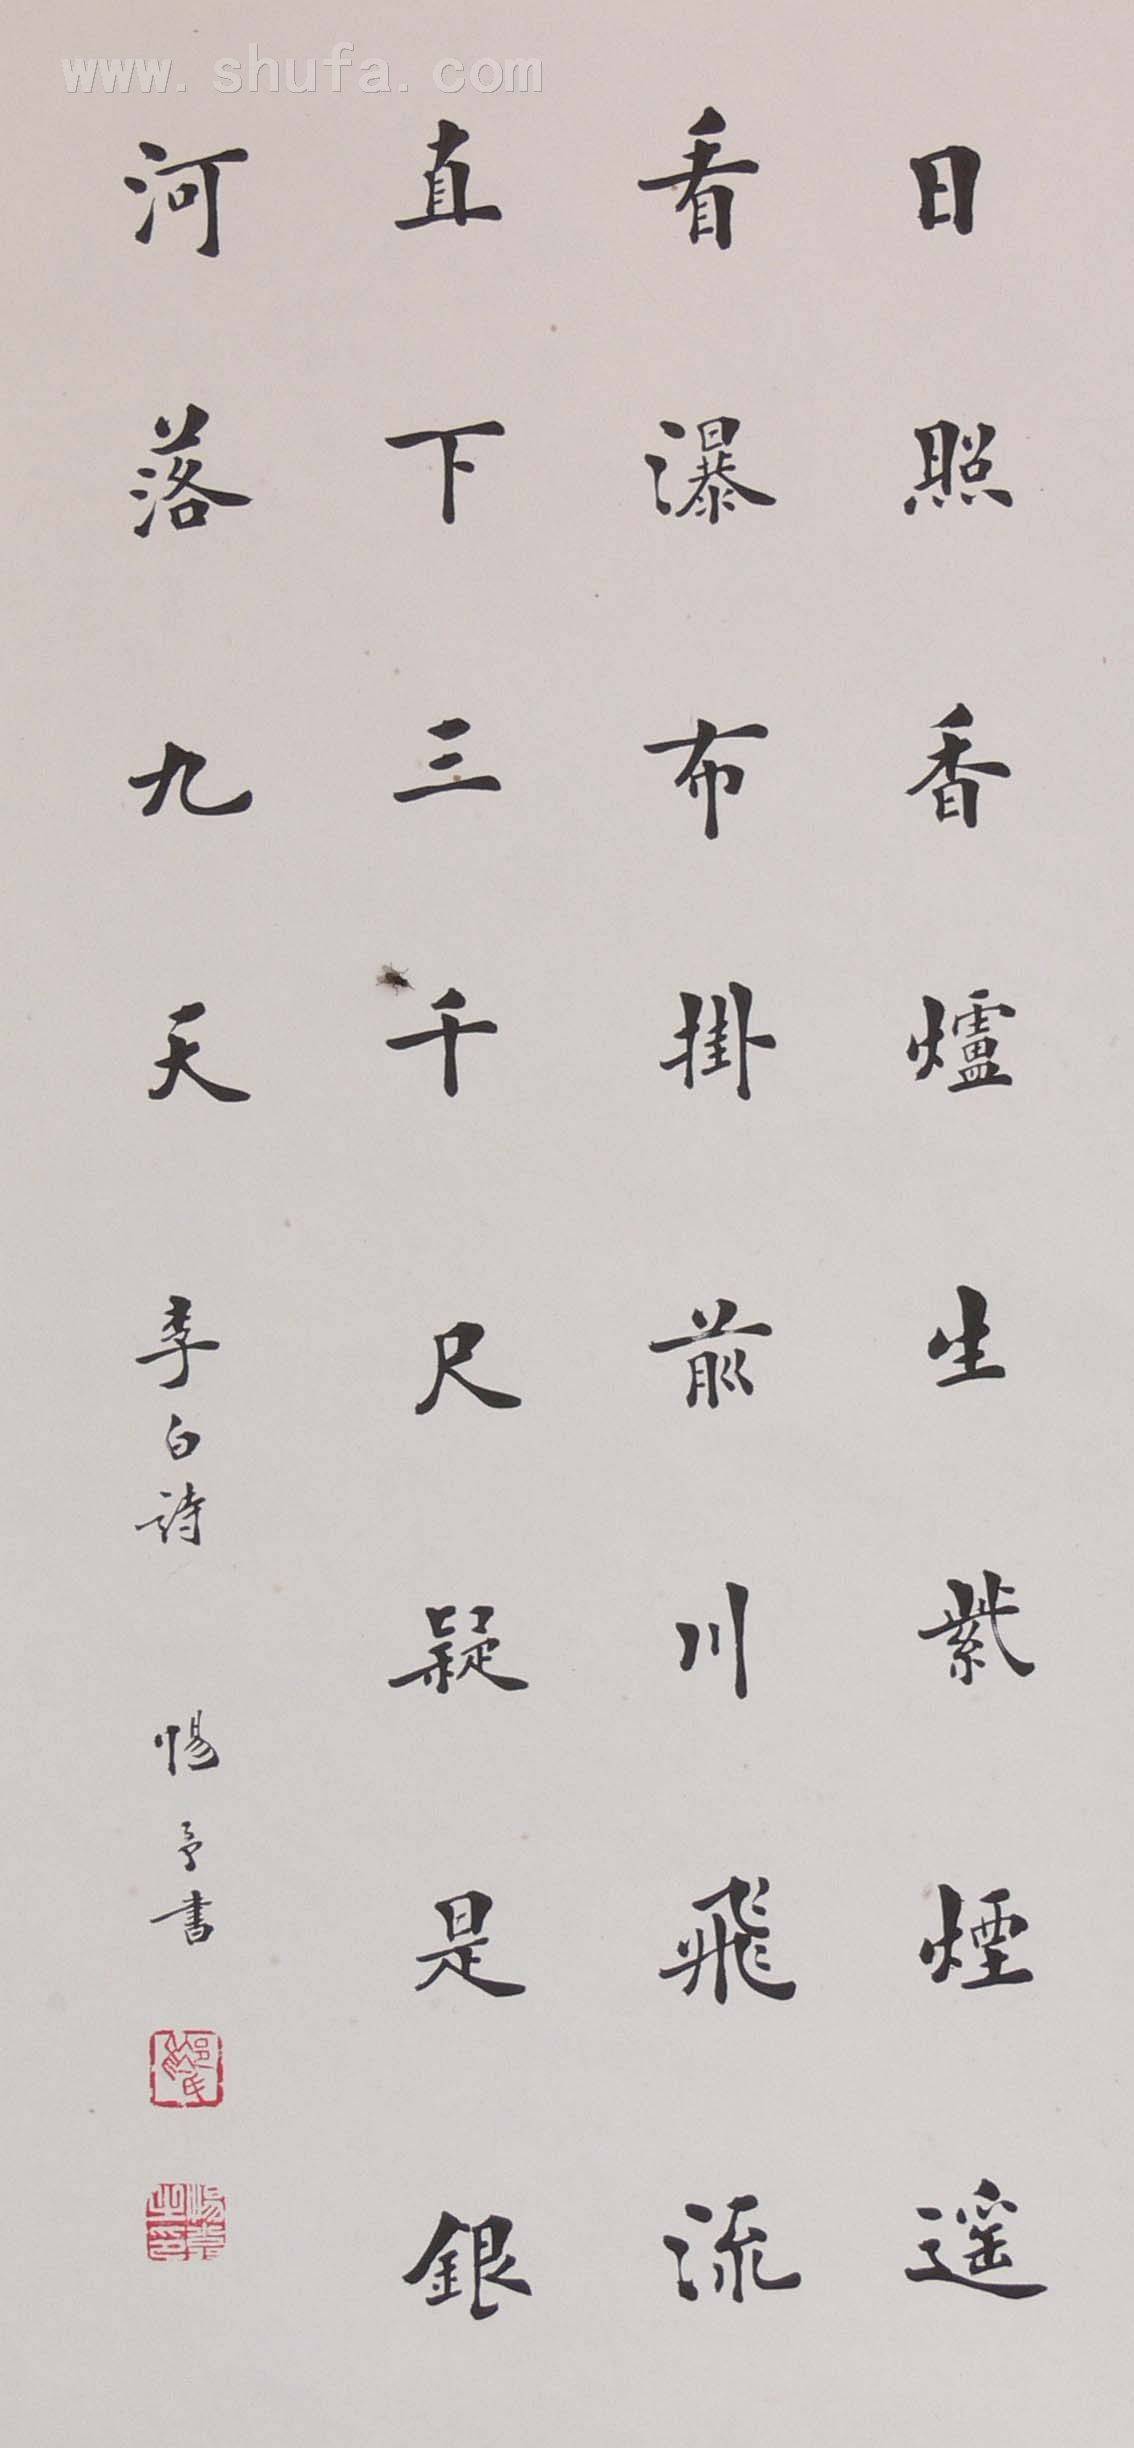 www.shufa.com
日照香爐生紫煙遥
看瀑布掛前川飛流
直下三千尺疑是銀
河落九天
李白詩
惕予書